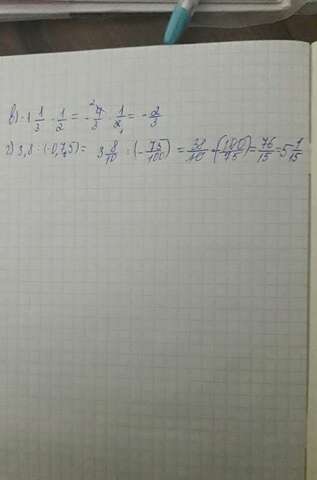 в) -1 1/3 · 1/2 = -4/3 · 1/2 = -2/3
г) 3,8 : (-0,75) = 3 8/10 : (-75/100) = 38/10 · (-100/75) = 76/15 = 5 1/15